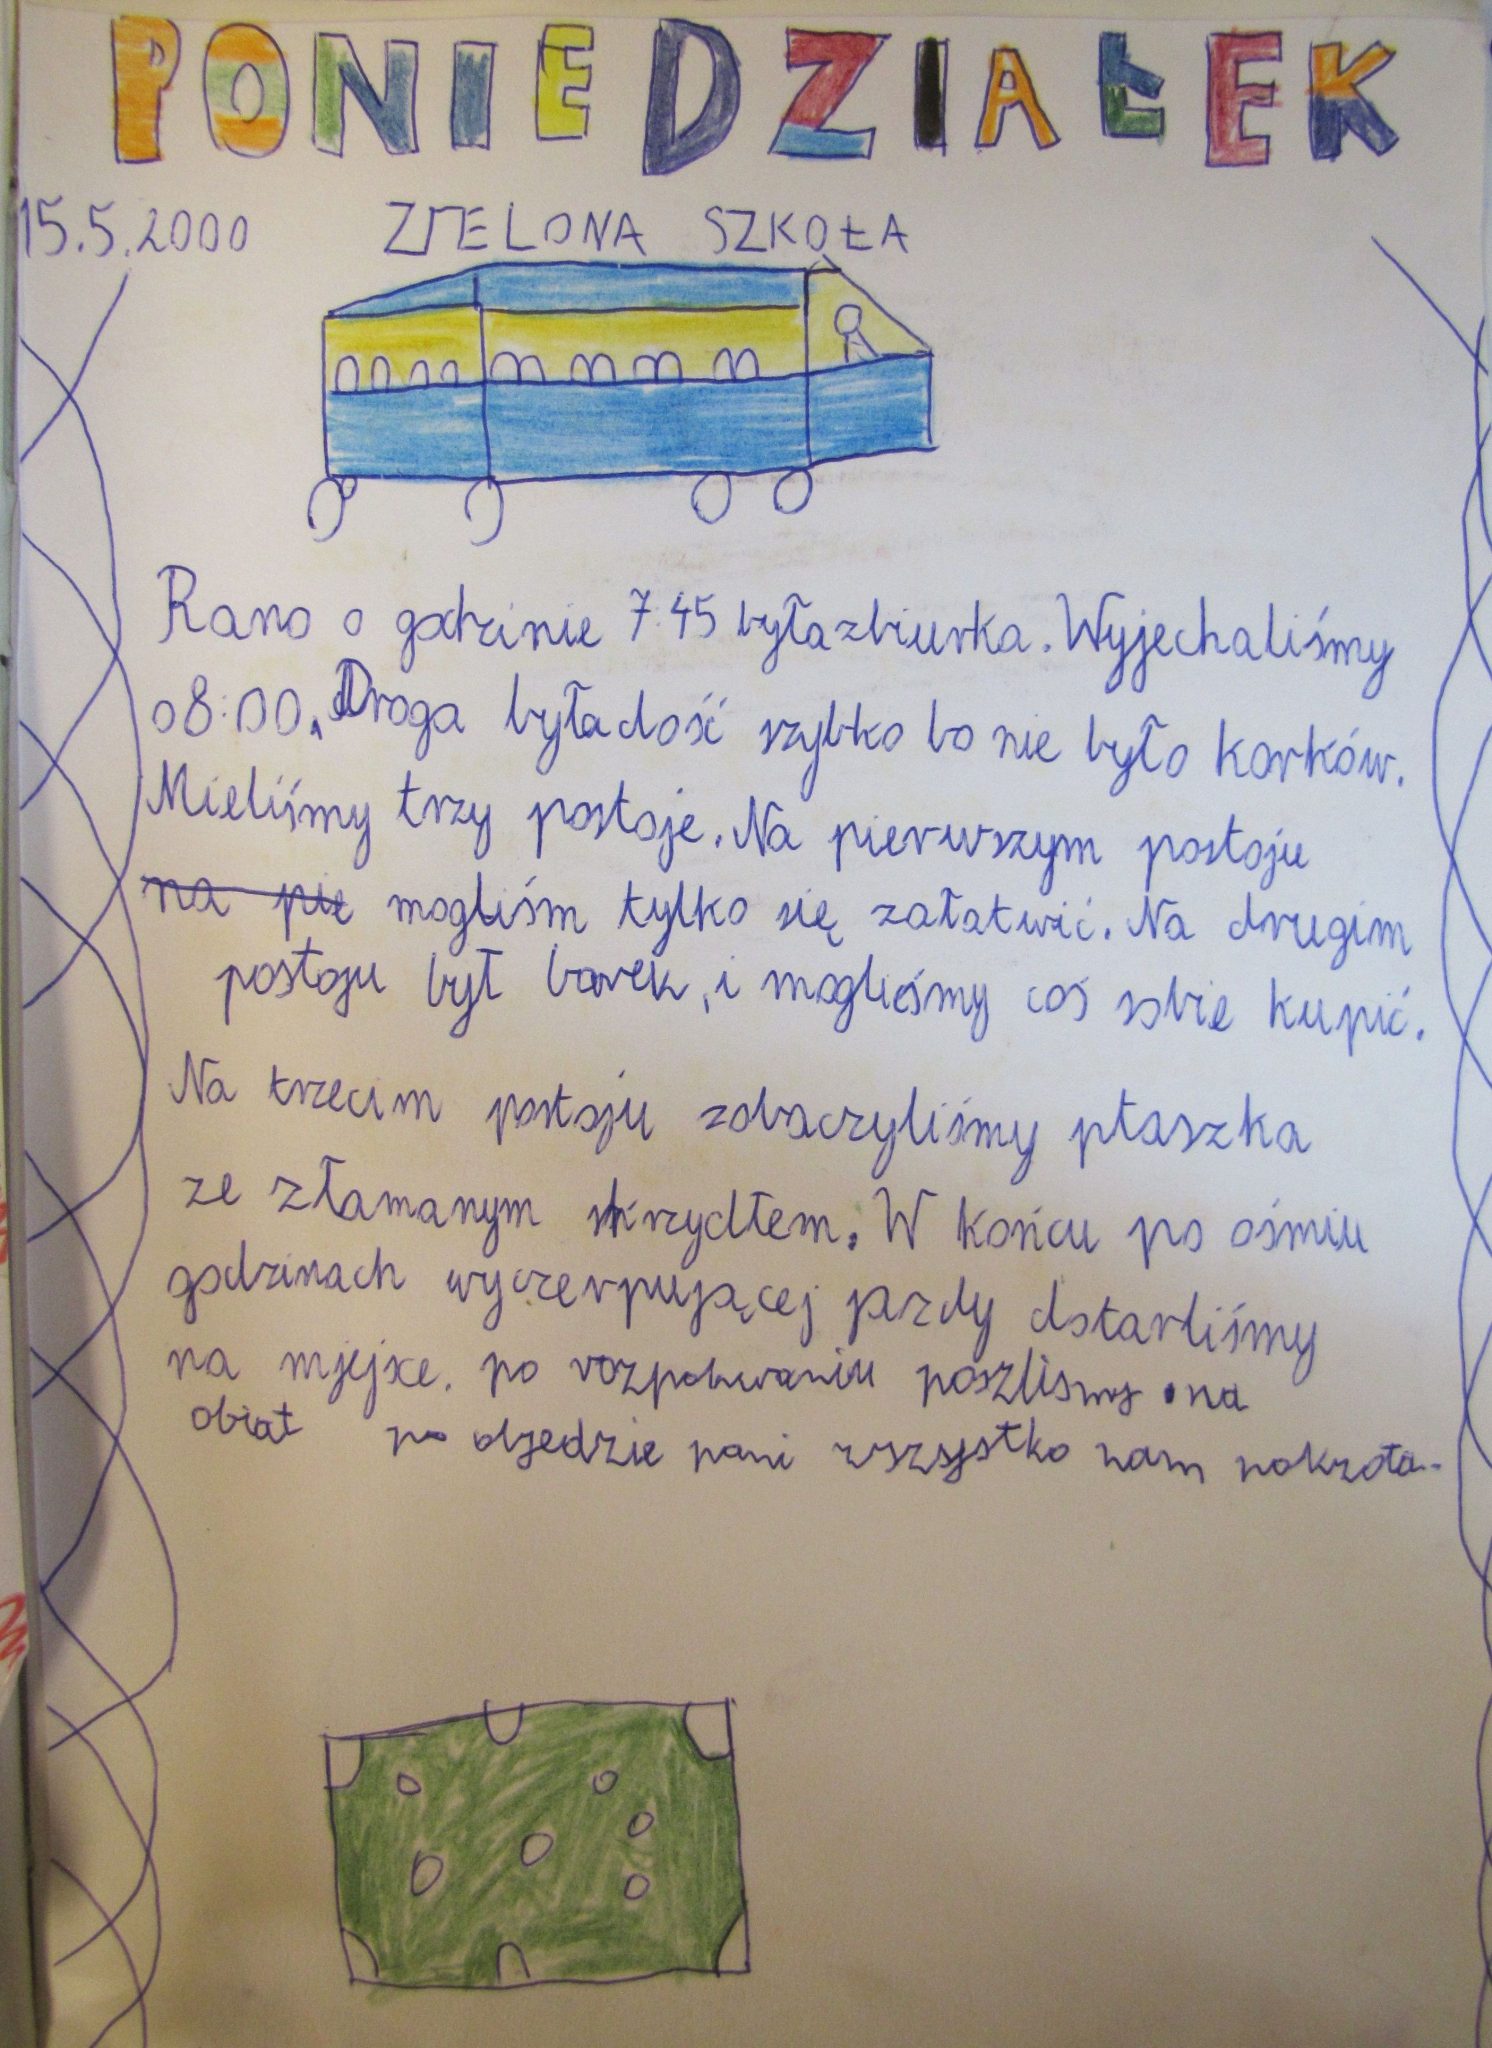 PONIEDZIAŁEK
15.5.2000 ZIELONA SZKOŁA
Rano o godzinie 7:45 była zbiurka. Wyjechaliśmy
o 8:00. Droga była dość szybko bo nie było korków.
Mieliśmy trzy postoje. Na pierwszym postoju
na pie mogliśm tylko się załatwić. Na drugim
postoju był barek, i mogliśmy coś sobie kupić.
Na trzecim postoju zobaczyliśmy ptaszka
ze złamanym skrzydłem. W końcu po ośmiu
godzinach wyczerpującej jazdy dotarliśmy
na mjejxe. po rozpakwaniu poszlismy na
obiat po objedzie pani wszsystko nam pokrzała..